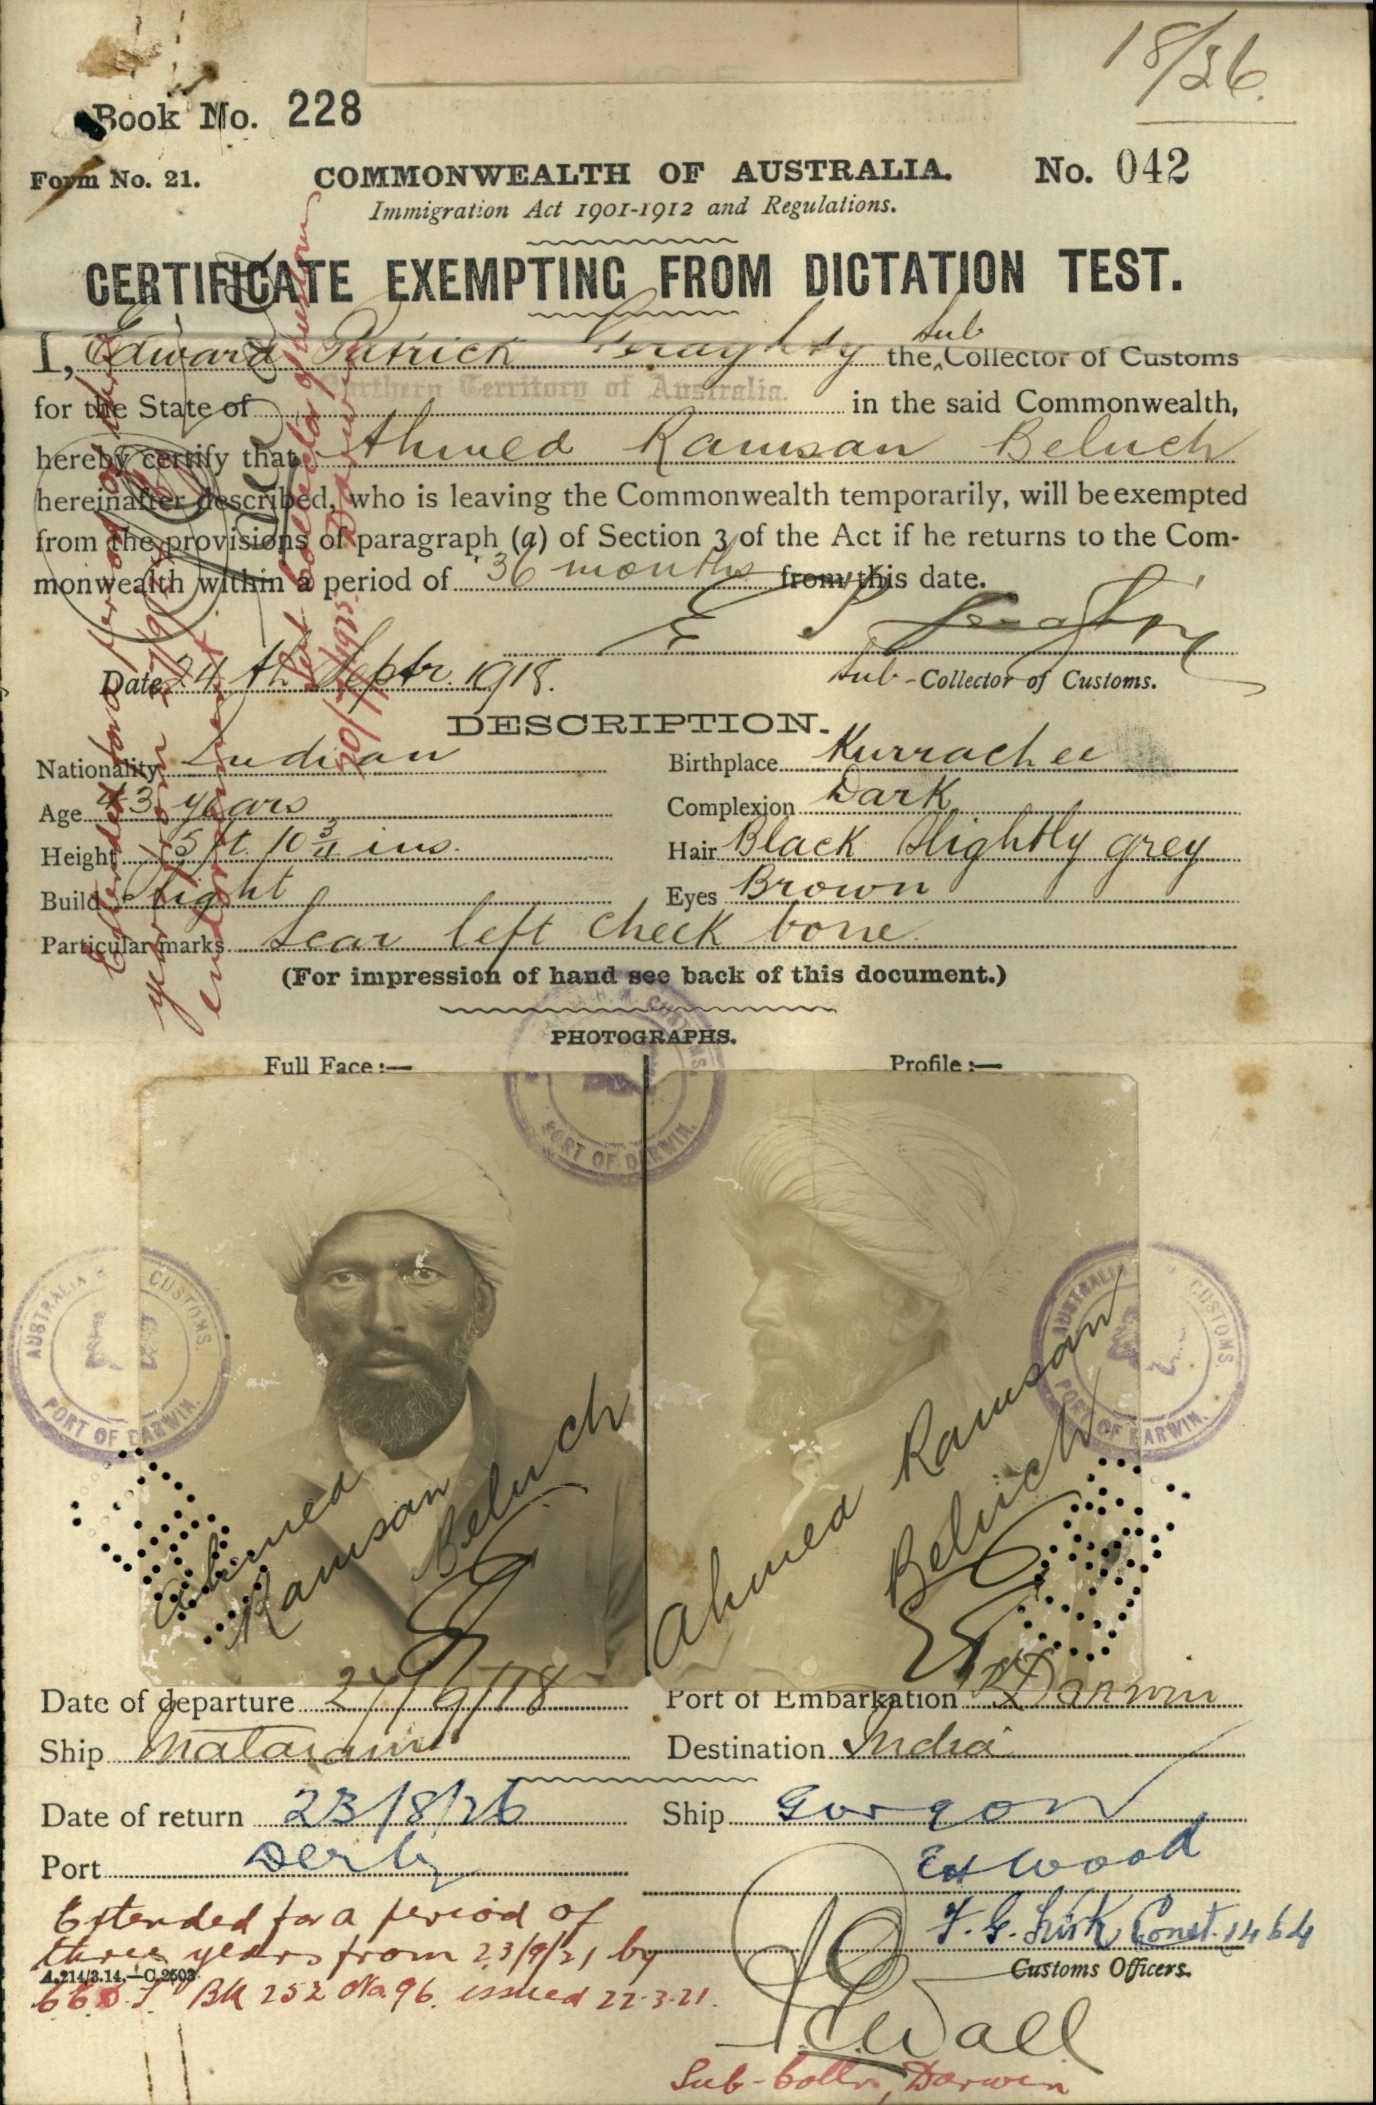 18/26.
Book No. 228
Form No. 21. COMMONWEALTH OF AUSTRALIA. No. 042
Immigration Act 1901-1912 and Regulations.
CERTIFICATE EXEMPTING FROM DICTATION TEST.
I, Edward Patrick Geraghty the Sub Collector of Customs
for the State of Northern Territory of Australia. in the said Commonwealth,
hereby certify that Ahmed Ramsan Beluch
hereinafter described, who is leaving the Commonwealth temporarily, will be exempted
from the provisions of paragraph (a) of Section 3 of the Act if he returns to the Com-
monwealth within a period of 36 months from this date.
Date 24th Septr. 1918. Sub-Collector of Customs.
DESCRIPTION.
Nationality Indian Birthplace Kurrachee
Age 43 years Complexion Dark
Height 5 ft. 10 3/4 ins. Hair Black slightly grey
Build Slight Eyes Brown
Particular marks Scar left cheek bone.
(For impression of hand see back of this document.)
PHOTOGRAPHS.
Full Face :— Profile :—
CUSTOMS. PORT OF DARWIN.
AUSTRALIA CUSTOMS. PORT OF DARWIN.
AUSTRALIA CUSTOMS. PORT OF DARWIN.
Ahmed Ramsan Beluch
Ahmed Ramsan Beluch
Date of departure 27/9/18 Port of Embarkation Darwin
Ship Mataram Destination India
Date of return 23/8/26 Ship Gorgon
Port Derby
Wood
Const. 1464
Customs Officers.
Extended for a period of
three years from 23/9/21 by
A.214/3.14.—C.2503
C.E.D.T. Bk 252 No. 96. issued 22.3.21.
Wall
Sub-Collr, Darwin